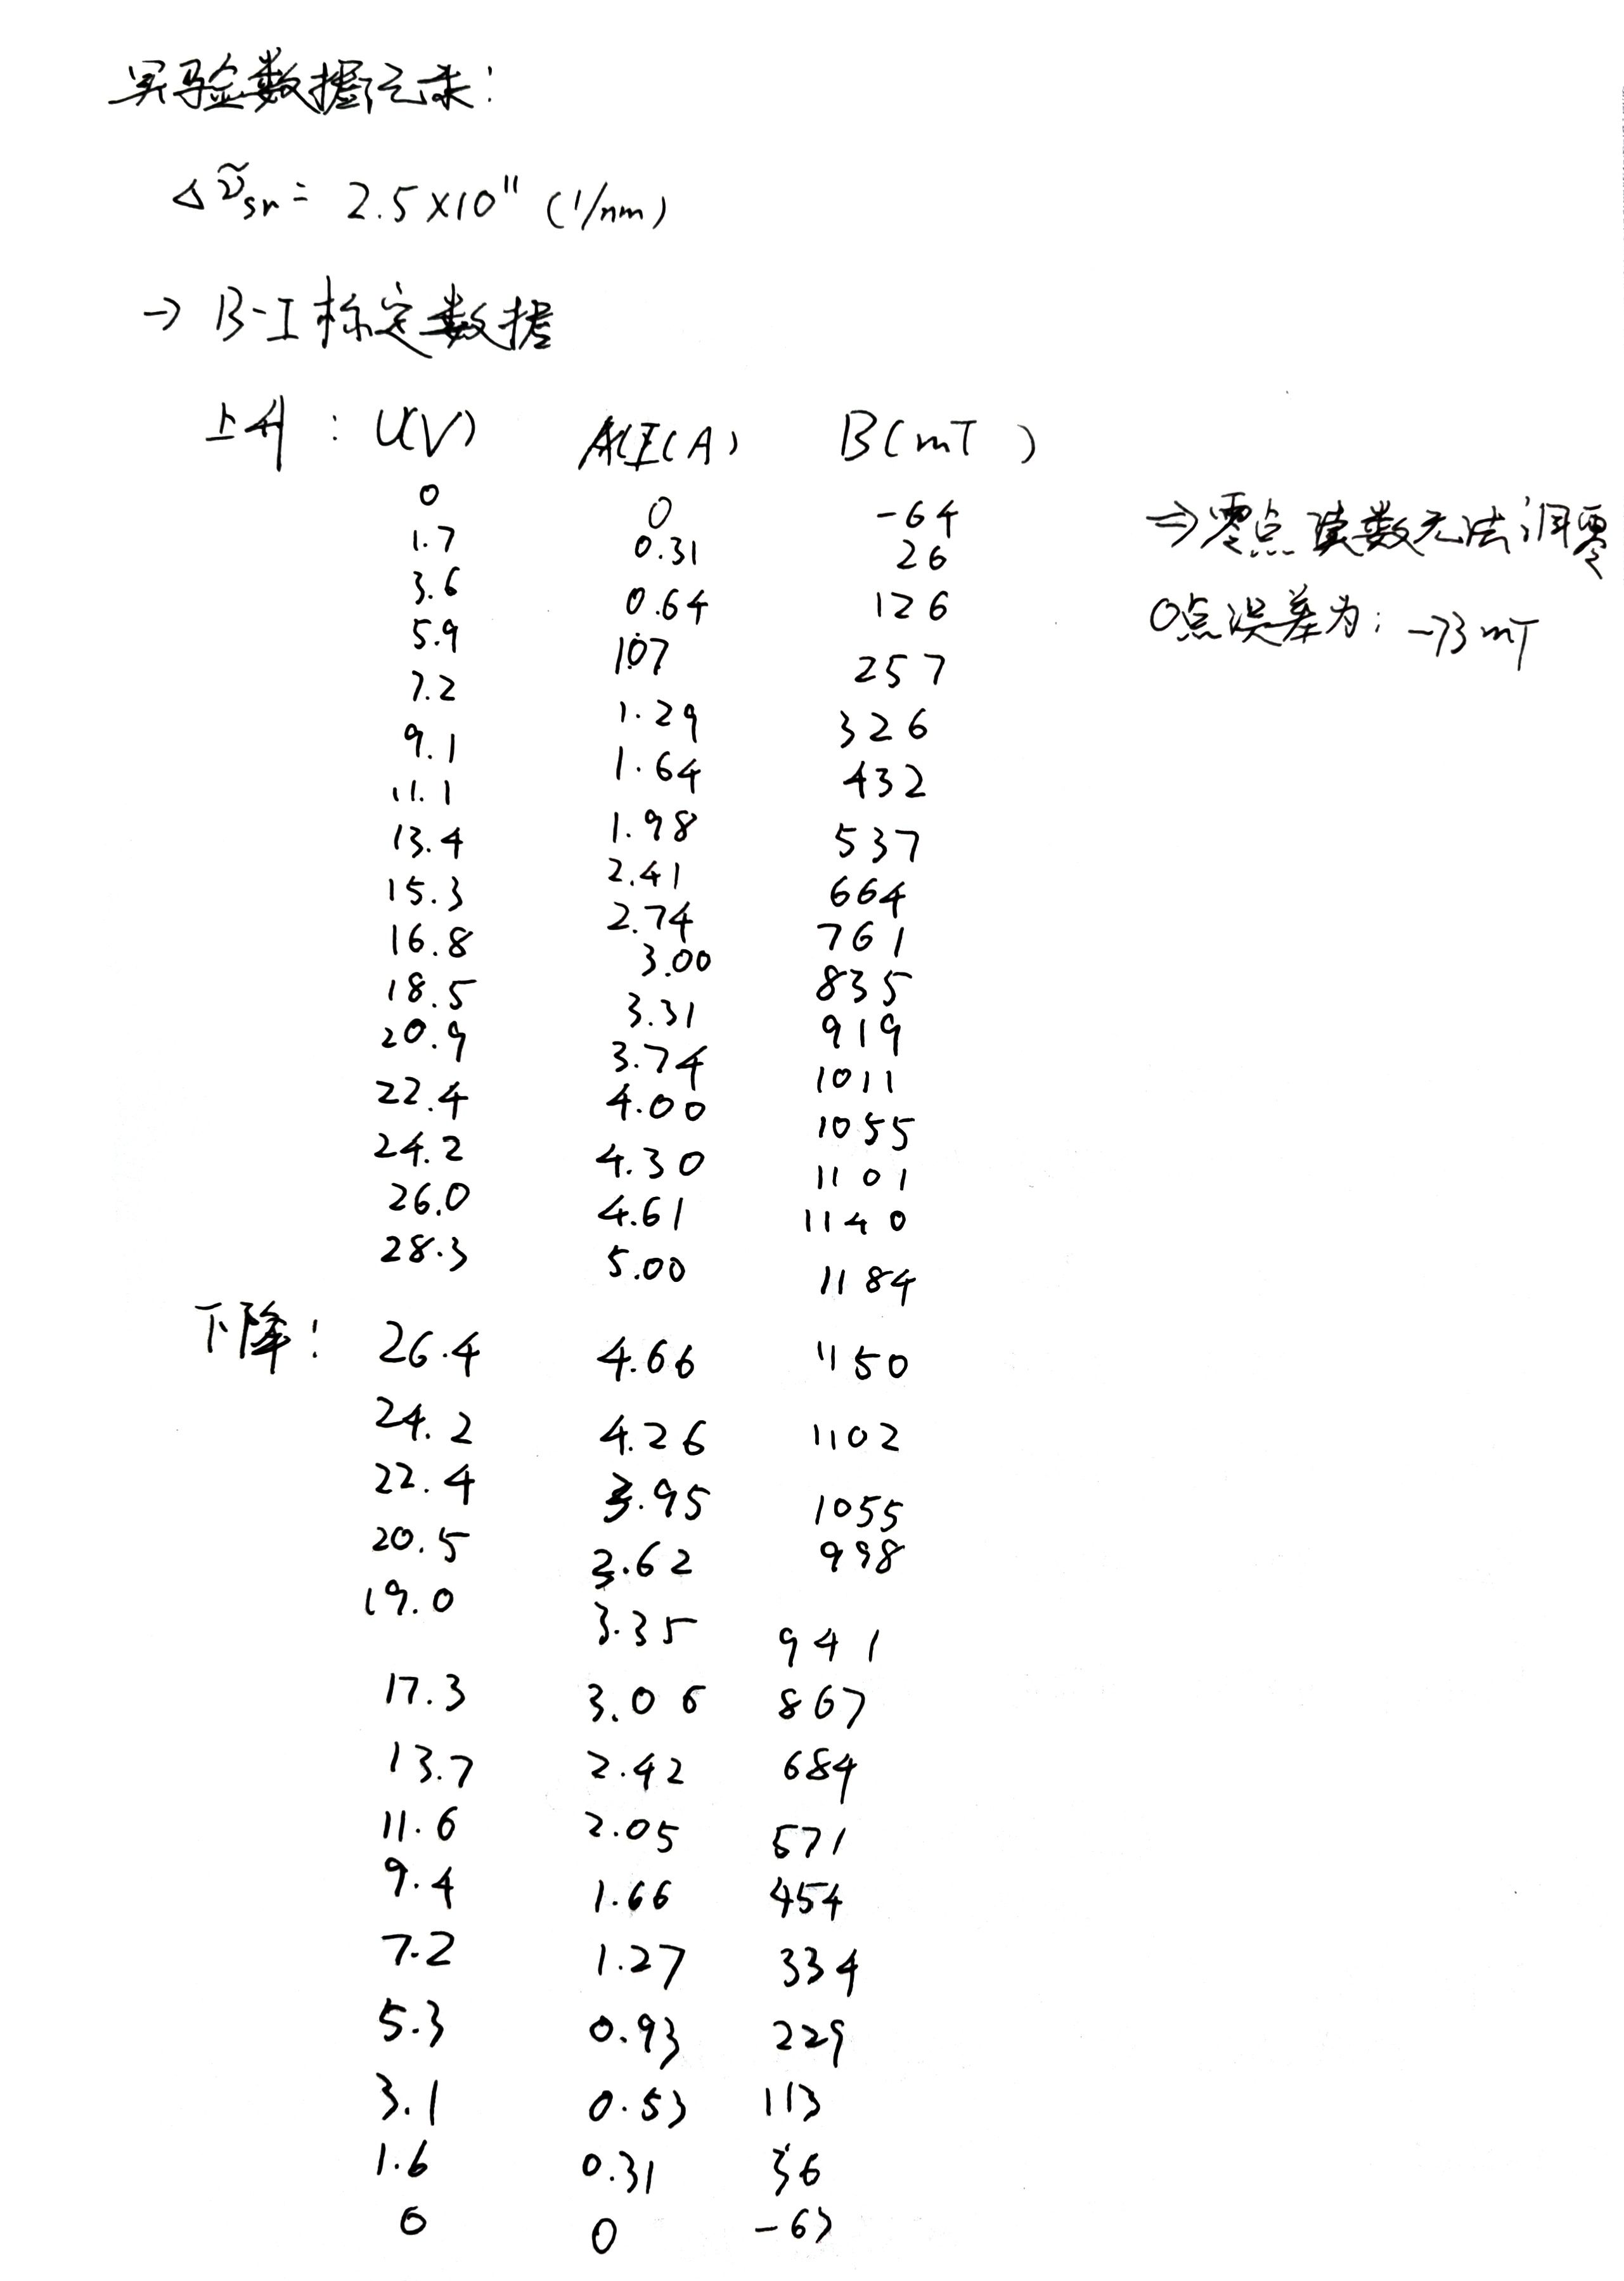 实验数据记录:
Δν̃sr = 2.5×10¹¹ (1/nm)
→ B-I 标定数据
上升: U(V) I(A) B(mT)
0 0 -64 ⇒零点读数无法调零
1.7 0.31 26
3.6 0.64 126 0点误差为: -73mT
5.9 1.07 257
7.2 1.29 326
9.1 1.64 432
11.1 1.98 537
13.4 2.41 664
15.3 2.74 761
16.8 3.00 835
18.5 3.31 919
20.9 3.74 1011
22.4 4.00 1055
24.2 4.30 1101
26.0 4.61 1140
28.3 5.00 1184
下降: 26.4 4.66 1150
24.2 4.26 1102
22.4 3.95 1055
20.5 3.62 998
19.0 3.35 941
17.3 3.06 867
13.7 2.42 684
11.6 2.05 571
9.4 1.66 454
7.2 1.27 334
5.3 0.93 229
3.1 0.53 113
1.6 0.31 36
0 0